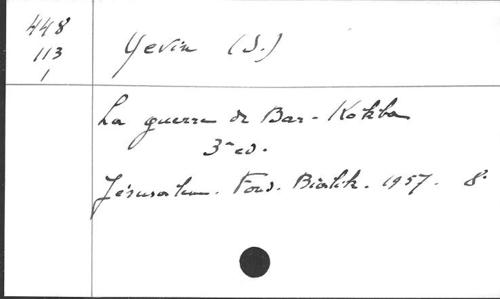 448
113
1
Yevin (S.)
La guerre de Bar-Kokba
3e ed.
Jérusalem. Fond. Bialik. 1957. 8°